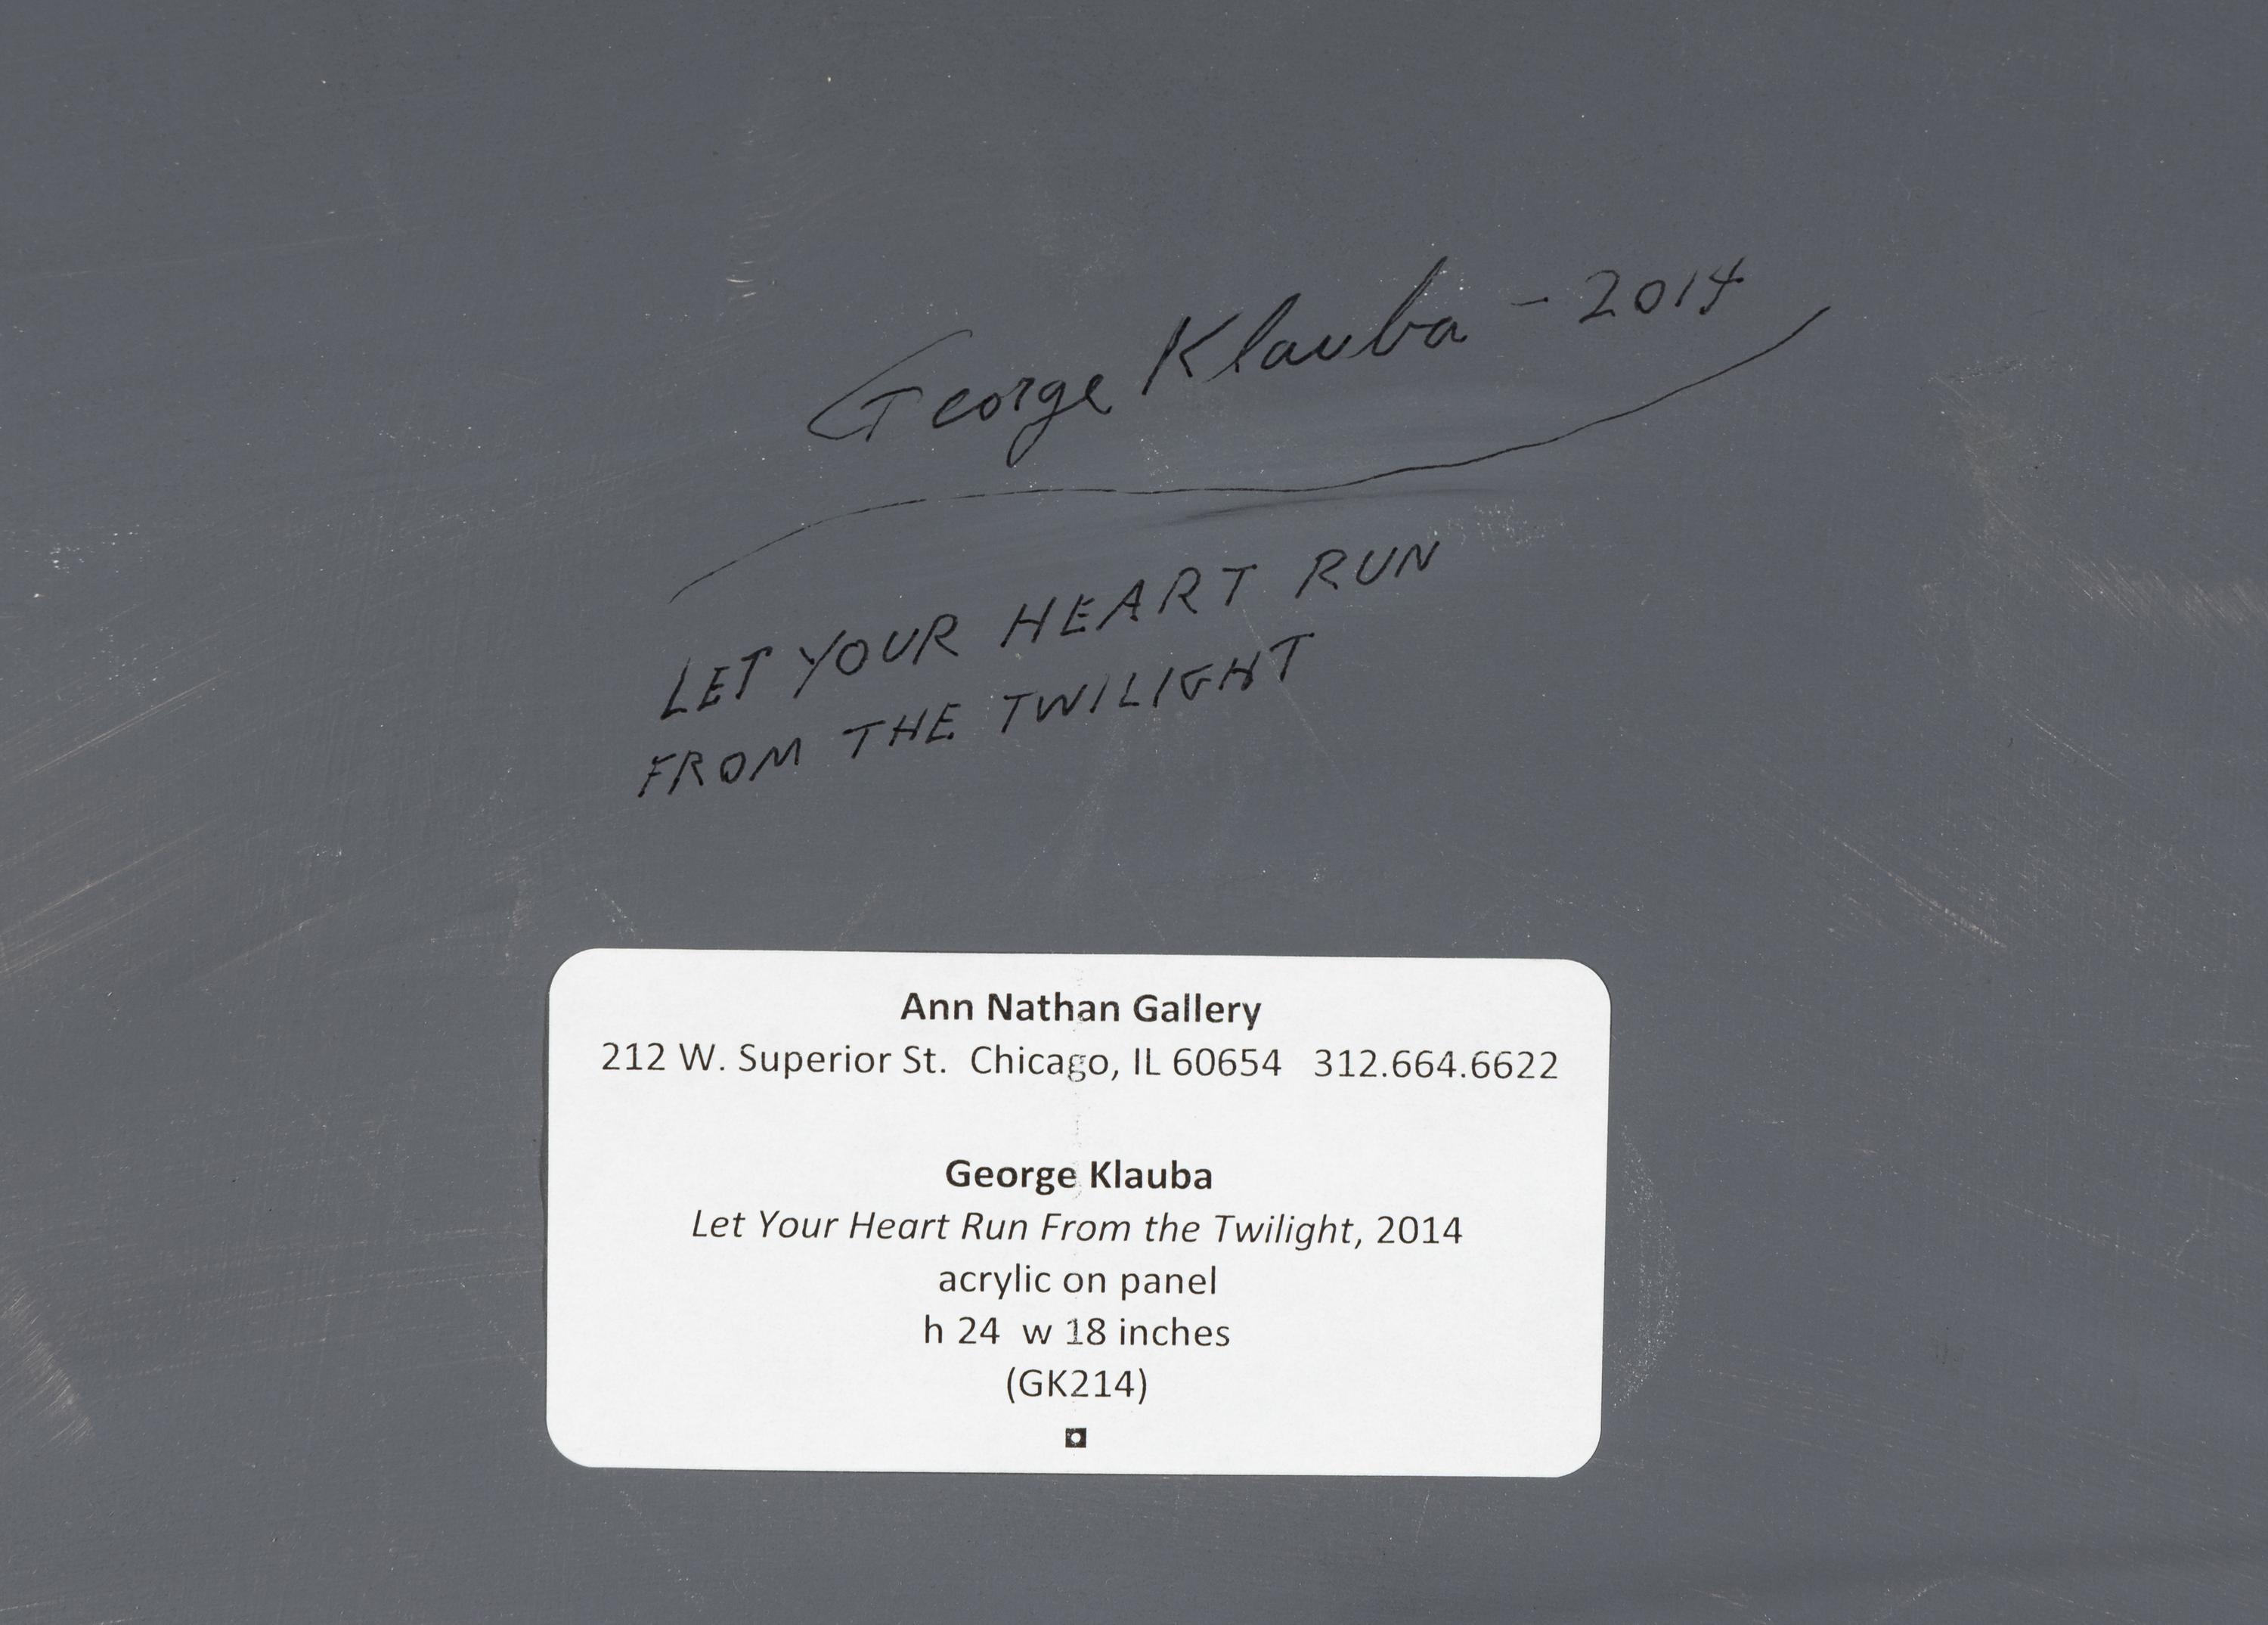 George Klauba - 2014
LET YOUR HEART RUN
FROM THE TWILIGHT
Ann Nathan Gallery
212 W. Superior St.  Chicago, IL 60654   312.664.6622
George Klauba
Let Your Heart Run From the Twilight, 2014
acrylic on panel
h 24  w 18 inches
(GK214)